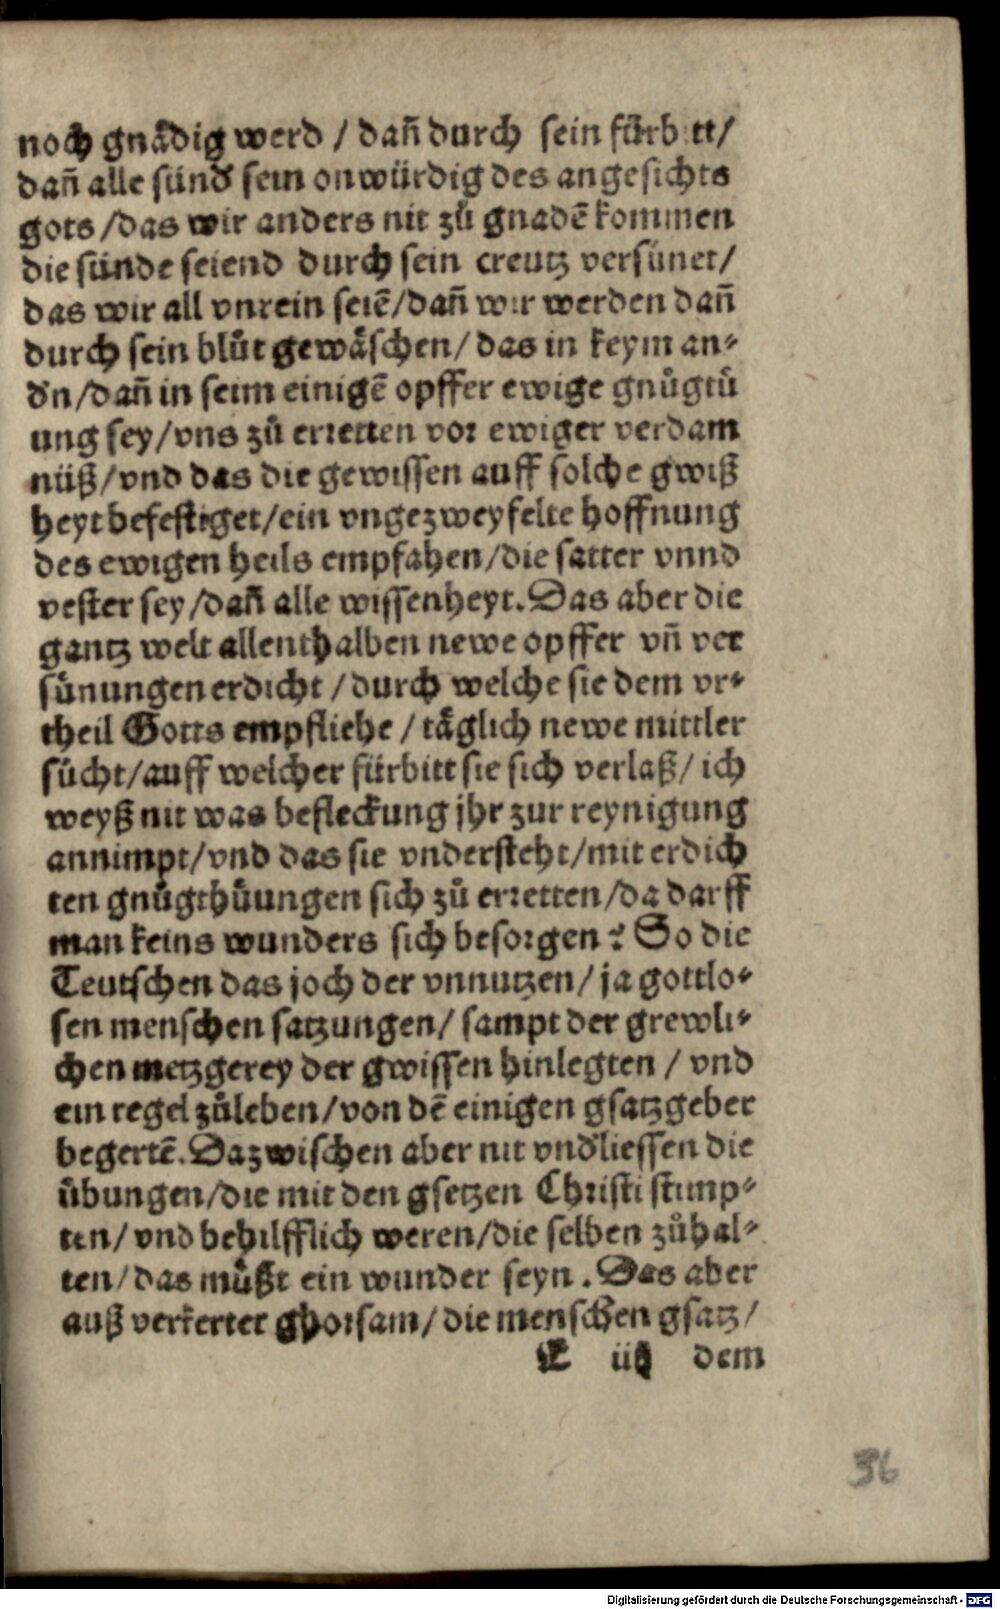 noch gnådig werd / dañ durch sein fürbitt/
dañ alle sünd̕ sein onwürdig des angesichts
gots /das wir anders nit zů gnadē kommen
die sünde seiend durch sein creutz versünet/
das wir all vnrein seiē/dañ wir werden dañ
durch sein blůt gewåschen/ das in keym an⸗
d̕n/dañ in seim einigē opffer ewige gnůgtů
ung sey/vns zů erꝛetten voꝛ ewiger verdam
nüß/vnd das die gewissen auff solche gwiß
heyt befestiget/ein vngezweyfelte hoffnung
des ewigen heils empfahen/die satter vnnd
vester sey/dañ alle wissenheyt. Das aber die
gantz welt allenthalben newe opffer vñ ver
sünungen erdicht /durch welche sie dem vr⸗
theil Gotts empfliehe / tåglich newe mittler
sůcht/auff welcher fürbitt sie sich verlaß/ ich
weyß nit was befleckung jhr zur reynigung
annimpt/vnd das sie vndersteht/mit erdich
ten gnůgthůungen sich zů erꝛetten/da darff
man keins wunders sich besoꝛgen? So die
Teutschen das joch der vnnutzen/ ja gottlo⸗
sen menschen satzungen/ sampt der grewli⸗
chen metzgerey der gwissen hinlegten / vnd
ein regel zůleben/von dē einigen gsatzgeber
begertē. Dazwischen aber nit vnd̕liessen die
übungen/die mit den gsetzen Chꝛisti stimp⸗
ten/ vnd behilfflich weren/die selben zůhal⸗
ten/das můßt ein wunder seyn. Das aber
auß verkerter ghoꝛsam/ die menschen gsatz/
E iiij dem
36
Digitalisierung gefördert durch die Deutsche Forschungsgemeinschaft - DFG